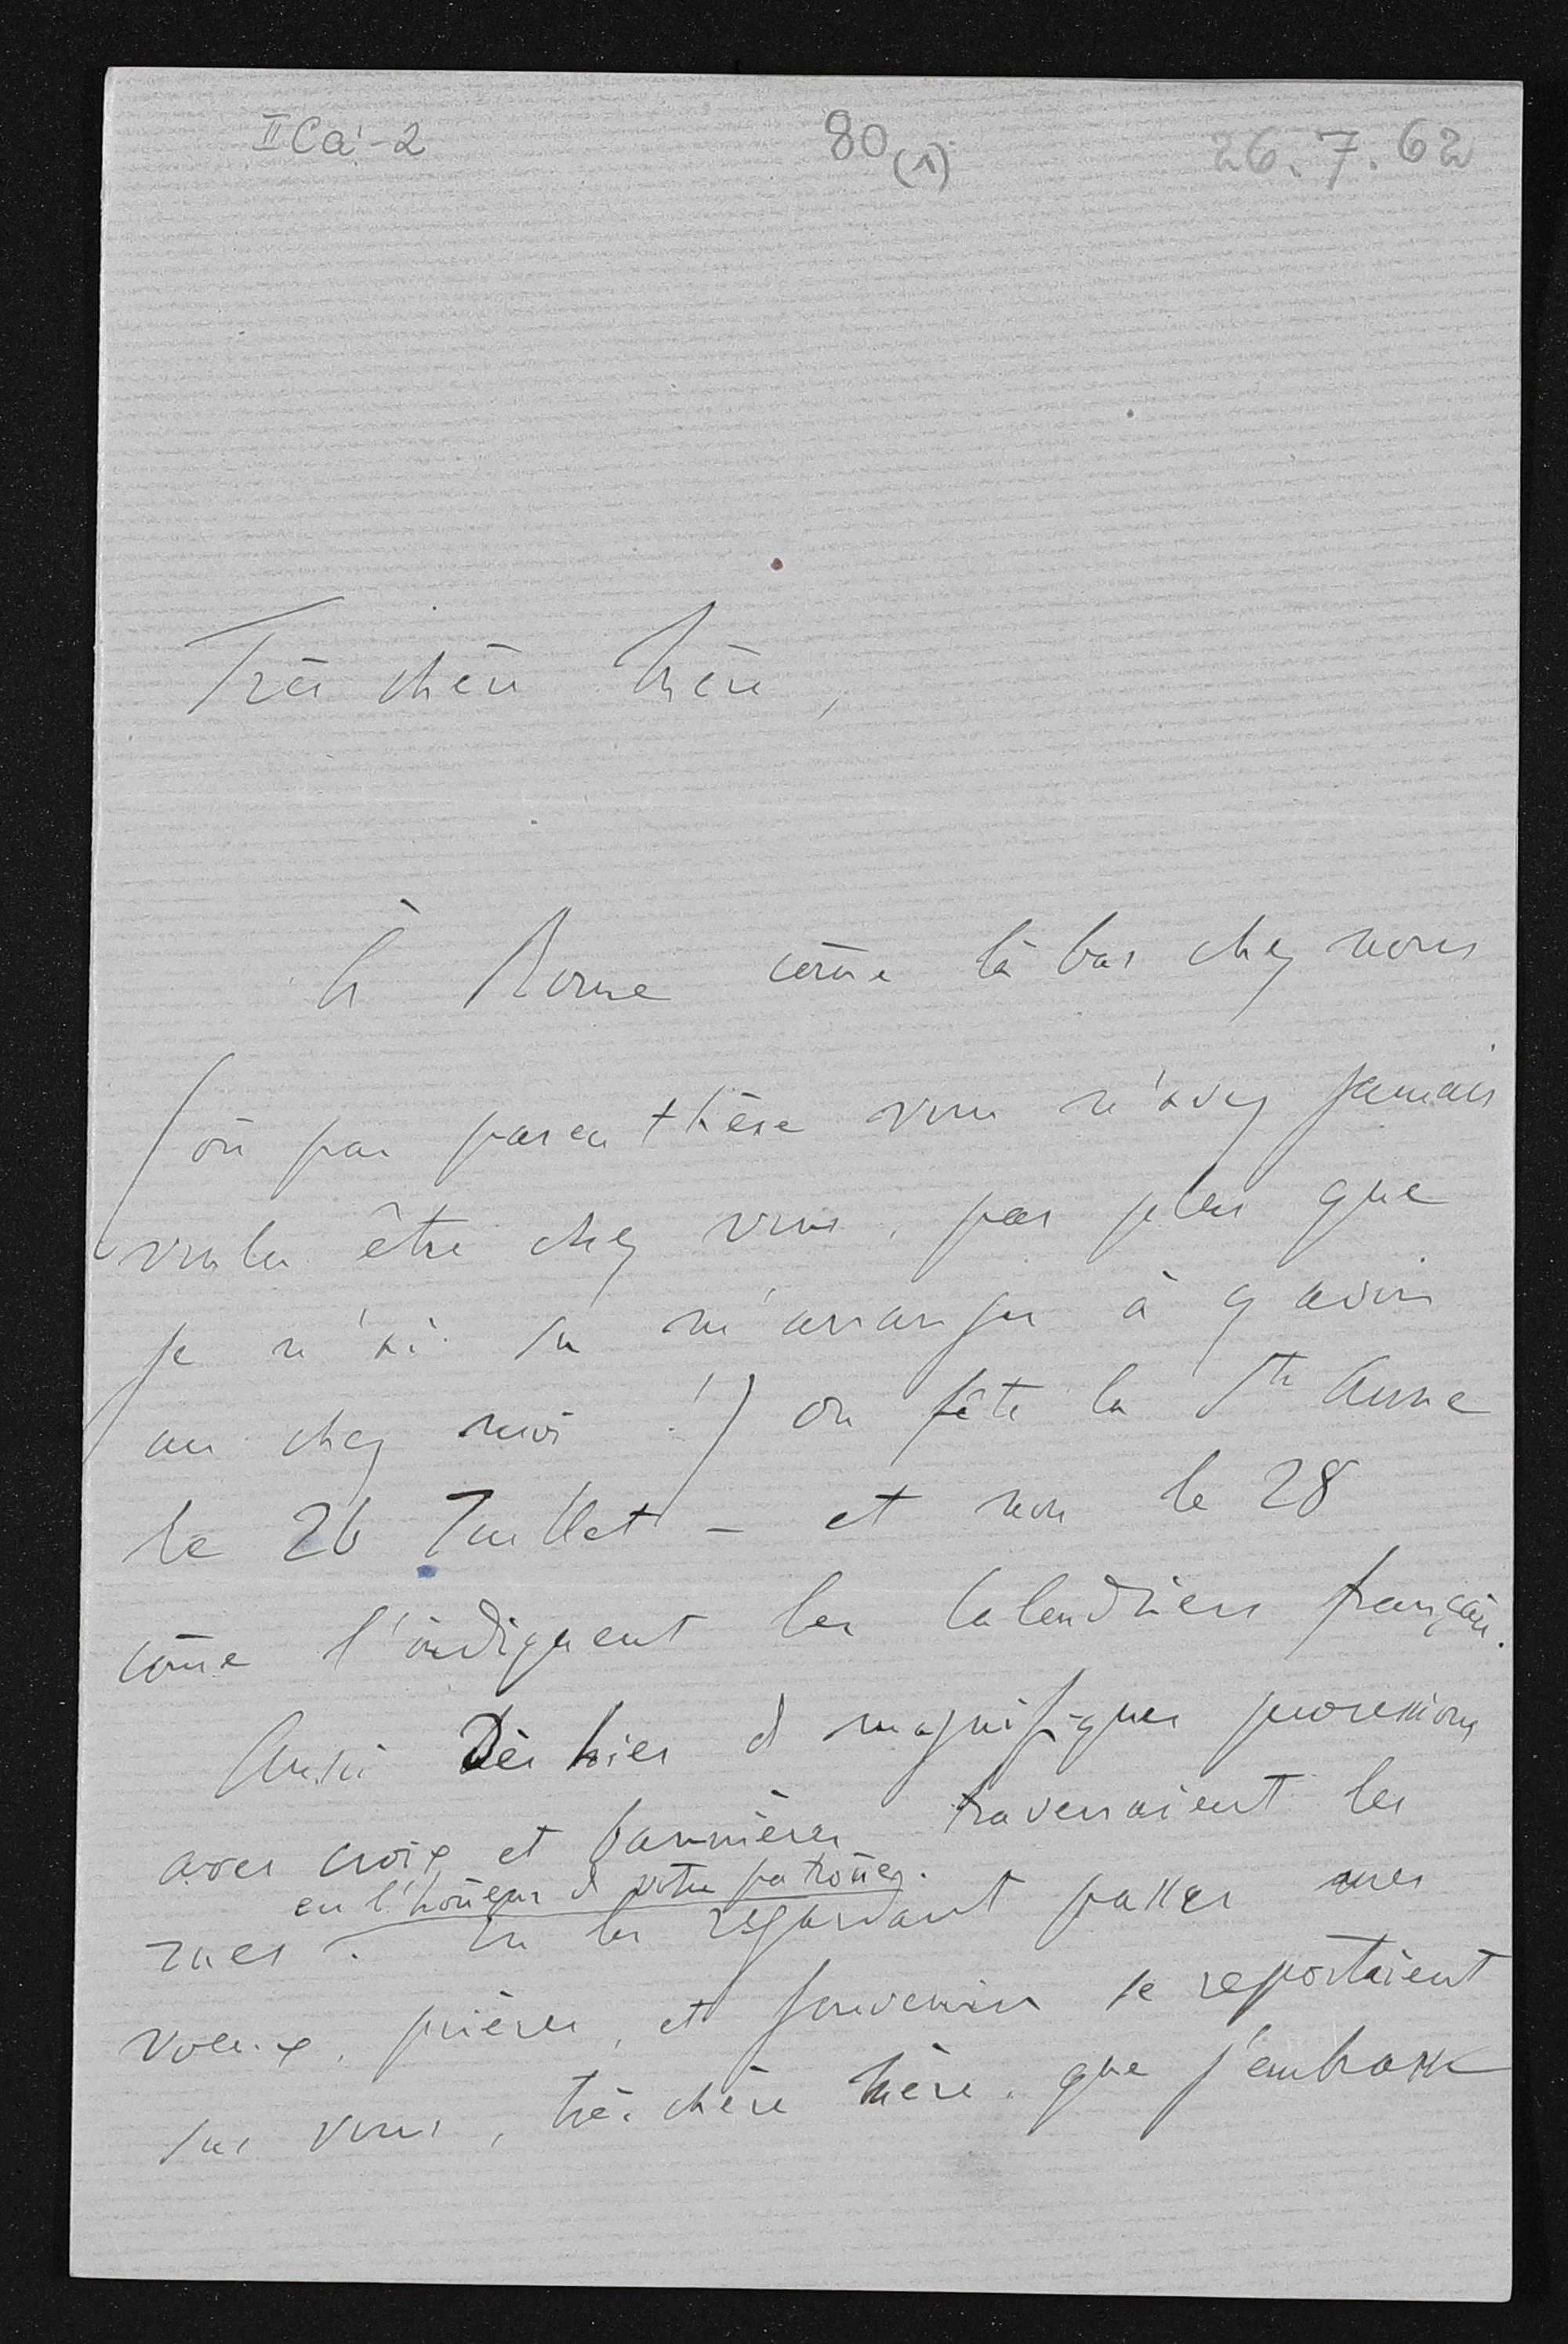 II Ca'-2 80(1) 26.7.62
Très chère Mère,
À Rome com̄e là bas chez nous
(où par parenthèse vous n'avez jamais
voulu être chez vous, pas plus que
je n'ai su m'arranger à y avoir
un chez moi !) on fête la Ste Anne
le 26 Juillet - et non le 28
com̄e l'indiquent les Calendriers français.
Aussi Dès hier d magnifiques processions
avec croix et bannières traversaient les
en l'hon̄eur d votre patron̄es.
rues. En les regardant passer mes
voeux, prières, et souvenirs se reportaient
sur vous, très chère Mère. que j'embrasse